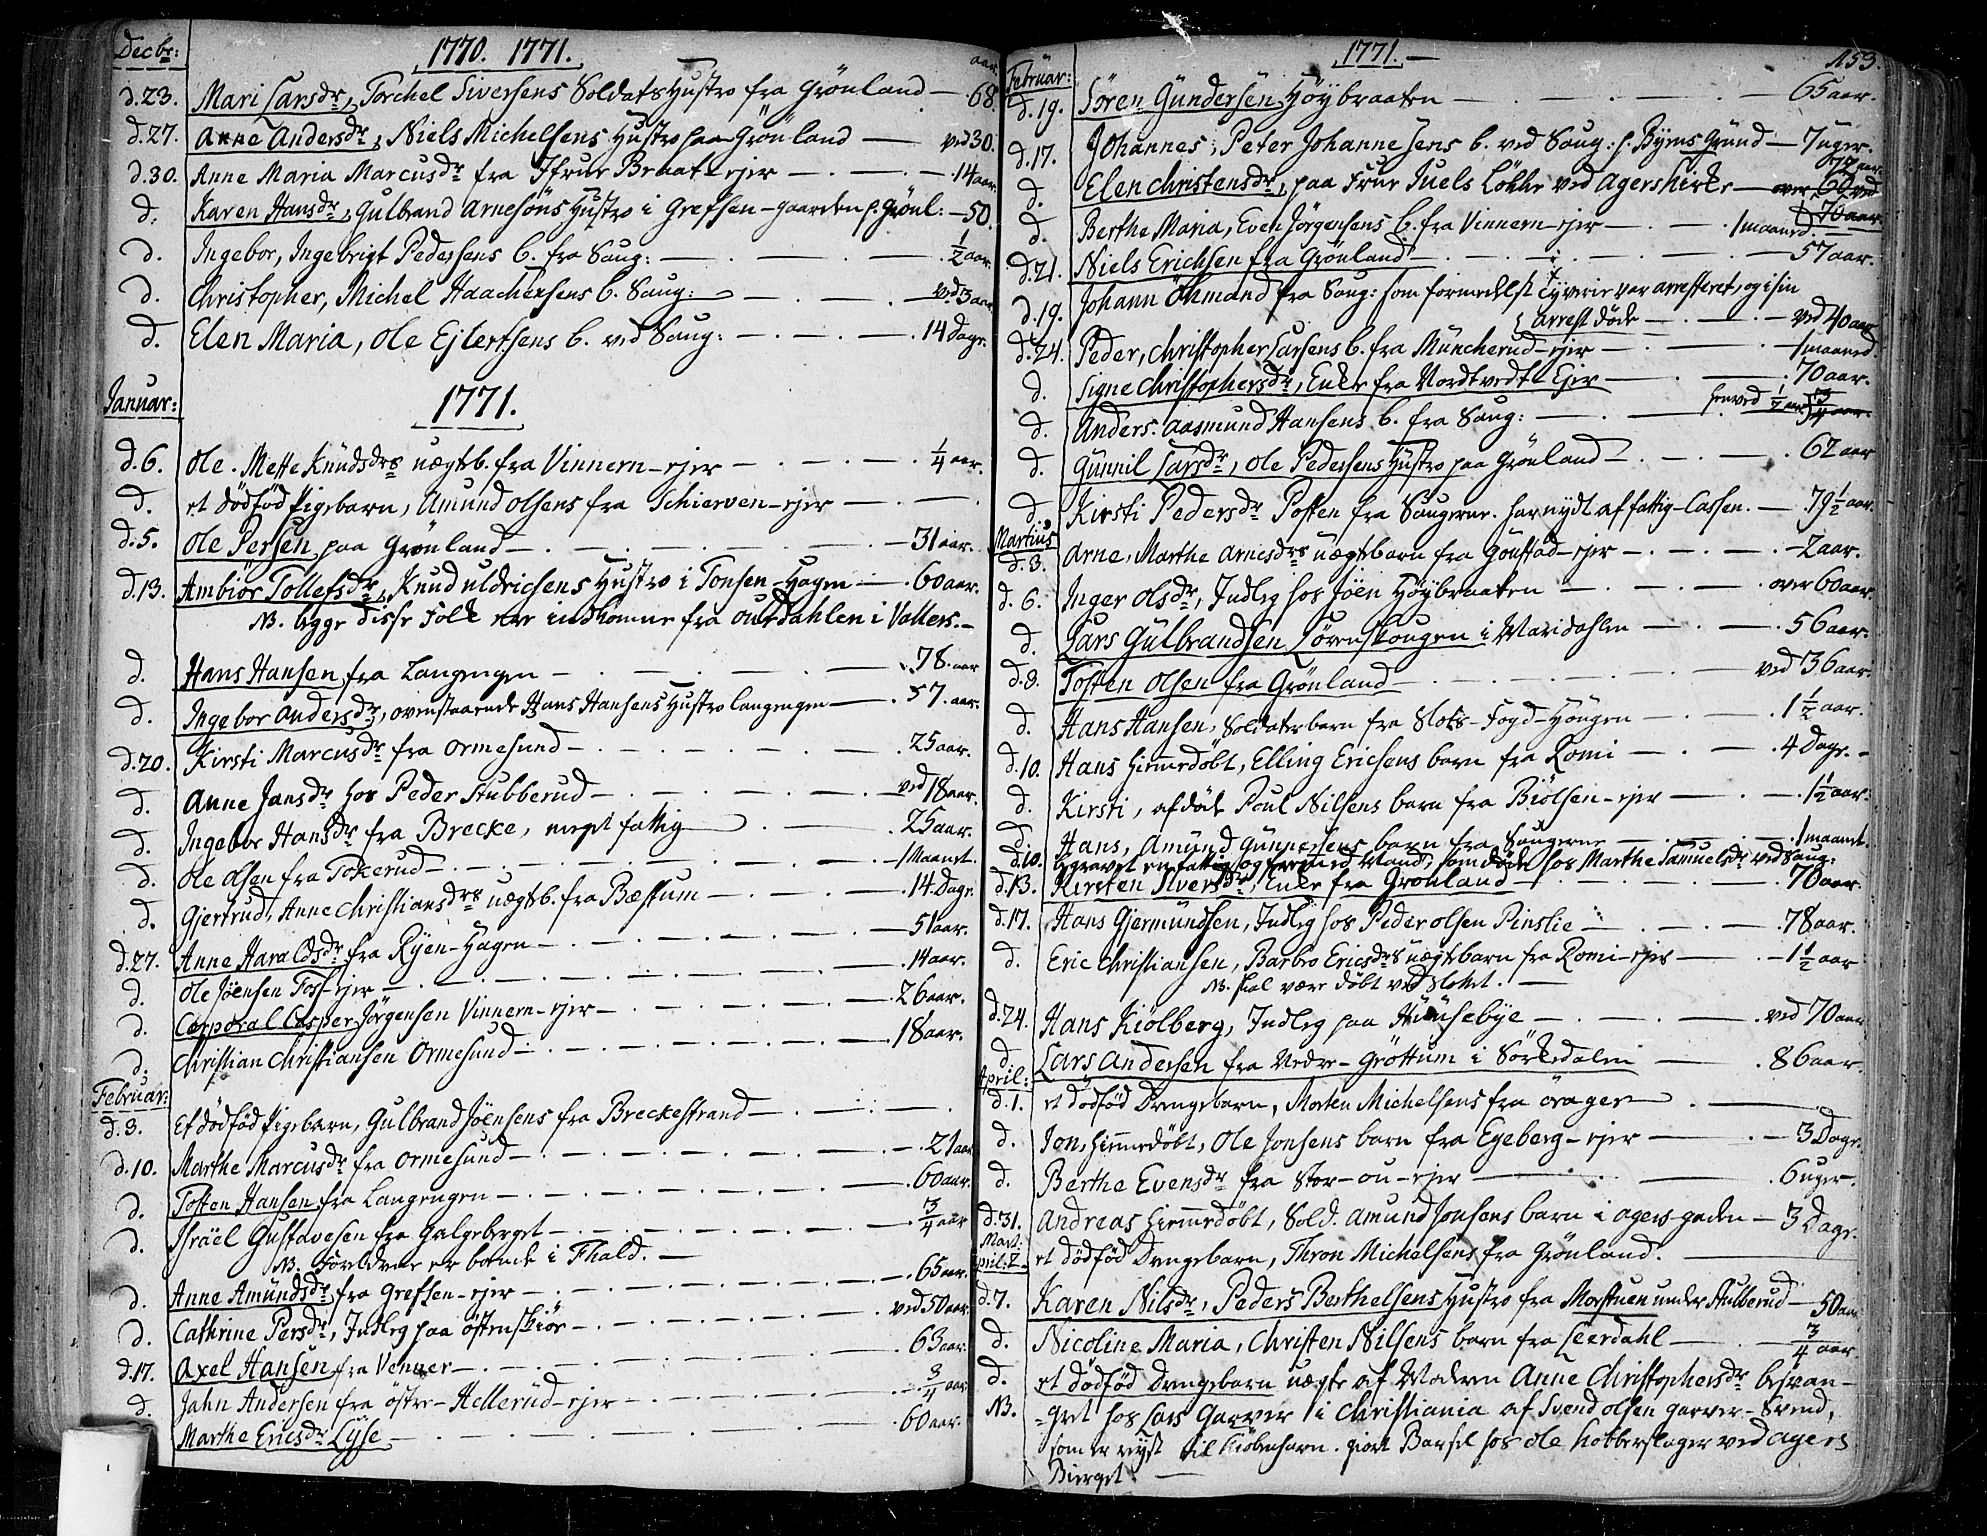 Decbr: 1770. 1771. aar.
d. 23. Mari Larsdr, Torchel Siversens Soldats Hustro fra Grönland — 68.
d. 27. Anne Andersdr, Niels Michelsens Hustro paa Grönland — ved 30.
d. 30. Anne Maria Marcusdr fra Braat-ejer — 14 aar.
d. Karen Hansdr, Gulbrand Arnesöns Hustro i Grefsen-gaarden p. Grönl: — 50.
d. Ingebor, Ingebrigt Pedersens b. fra Saug: — 1/2 aar.
d. Christopher, Michel Haachensens b. Saug: — ved 3 aar
d. Elen Maria, Ole Ejlertsens b. ved Saug: — 14 Dage.
Januar: 1771.
d. 6. Ole. Mette Knudsdrs uægteb. fra Vinnern-ejer — 1/4 aar.
d. et dödföd Pigebarn, Amund Olsens fra Schierven-ejer —
d. 5. Ole Persen paa Grönland — 31 aar.
d. 13. Ambiör Tollefsdr, Knud Uldrichsens Hustro i Tonsen-Hagen — 60 aar.
NB. begge disse Folk ere indkomne fra Ourdahlen i Valders. —
d. Hans Hansen fra Langengen — 78. aar
d. Ingebor Andersdr, ovenstaaende Hans Hansens Hustro Langengen — 57. aar.
d. 20. Kirsti Marcusdr fra Ormesund — 25 aar.
d. Anne Jansdr hos Peder Stubberud — ved 18 aar.
d. Ingebor Hansdr fra Brecke, meget fattig — 25 aar.
d. Ole Olsen fra Tokerud — 1 Maanet.
d. Gjertrud, Anne Christiansdrs uægteb. fra Bæssum — 14 Dage
d. 27. Anne Haraldsdr fra Ryen-Hagen — 51 aar.
d. Ole Jöensen Foss-ejer — 14 aar.
d. Corporal Casper Jörgensen Vinnern-ejer — 26 aar.
d. Christian Christiansen Ormesund — 18 aar.
Februar:
d. 3. Et dödföd Pigebarn, Gulbrand Jöensens fra Breckestrand —
d. 10. Marthe Marcusdr fra Ormesund — 21 aar
d. Tosten Hansen fra Langengen — 60 aar.
d. Israel Gustavesen fra Galgeberget — 3/4 aar
NB. Forældrene er boende i Fhald. —
d. Anne Amundsdr fra Grefsen-ejer — 65 aar.
d. Cathrine Persdr, Indleg paa Östenskiör — ved 50 aar
d. 17. Axel Hansen fra Venner — 63 aar
d. Jahn Andersen fra östre-Hellerud-ejer — 3/4 aar
Marthe Ericsdr Lyse — 60 aar.
1771. — 153.
Februar:
d. 19. Sören Gundersen Höybraaten — 65 aar.
d. 17. Johannes, Peter Johannesens b. ved Saug: p. Byens Grund — 7 uger.
d. Elen Christensdr, paa Frue Juels Lökke ved Agers Kirke — over 60 ved 70 aar. 72 aar
d. Berthe Maria, Even Jörgensens b. fra Vinnern-ejer — 1 maaned.
d. 21. Niels Erichsen fra Grönland — 57 aar.
d. 19. Johann Öhmand fra Saug: som formedelst Tyverie var arresteret, og i sin
arrest döde — ved 40 aar
d. 24. Peder, Christopher Larsens b. fra Müncherud-ejer — 1 maaned.
d. Signe Christophersdr, Enke fra Nordtvedt Ejer — 70 aar.
d. Anders. Aasmund Hansens b. fra Saug: — henved 1/2 aar 3/4 aar.
d. Gunnil Larsdr, Ole Pedersens Hustro paa Grönland — 62 aar
d. Kirsti Pedersdr Posten fra Saugerne. har nydt af fattig-Cassen. — 79 1/2 aar.
Martius
d. 3. Arne, Marthe Arnesdrs uægtebarn fra Goustad-ejer — 2 aar.
d. 6. Inger Olsdr, Indleg hos Jöen Höybraaten — over 60 aar.
d. Lars Gulbrandsen Lörenskougen i Maridahlen — 56 aar.
d. 8. Tosten Olsen fra Grönland — ved 36 aar.
d. Hans Hansen, Soldaterbarn fra Slots-Fogd-Höugen — 1 1/2 aar.
d. 10. Hans hiemmedöbt, Elling Ericsens barn fra Romi — 4 Dage. —
d. Kirsti, afdöde Poul Nilsens barn fra Biölsen-ejer — 1 1/2 aar.
d. Hans, Amund Gunnersens barn fra Saugerne — 1 maanet.
d. 10. begravet en fattig og fremmed Mand, som döde hos Marthe Samuelsdr ved Saug:
d. 13. Kirsten Siversdr, Enke fra Grönland — 70 aar.
d. 17. Hans Gjermundsen, Indleg hos Peder Olsen Pinslie — 78 aar.
d. Eric Christiansen, Barbro Ericsdrs uægtebarn fra Romi-ejer — 1 1/2 aar
NB. skal være döbt ved Slottet. —
d. 24. Hans Kiölberg, Indleg paa Huusebye — ved 70 aar
d. Lars Andersen fra Nedre-Gröttum i Sörkedalen — 86 aar.
April:
d. 1. et dödföd Drengebarn, Morten Michelsens fra örager —
d. Jon, hiemmedöbt, Ole Jonsens barn fra Egeberg-ejer — 3 Dage.
d. Berthe Evensdr fra Stor-ou-ejer — 6 uger.
d. 31. Mart: Andreas hiemmedöbt, Sold. Amund Jonsens barn i Agers gaden — 3 Dage.
April: 2. et dödföd Drengebarn, Thron Michelsens fra Grönland. —
d. 7. Karen Nilsdr, Peders Berthelsens Hustro fra Morstuen under Stubberud — 50 aar
d. Nicoline Maria, Christen Nilsens barn fra Leerdahl — 3/4 aar.
d. et dödföd Drengebarn uægte af Moderen Anne Christophersdr besvan-
NB. =gret hos Lars Garver i Christiania af Svend Olsen garver-Svend,
som er rejst til Kiöbenhavn. giort Barsel hos Ole Kobberslager ved Agers
Bierget —